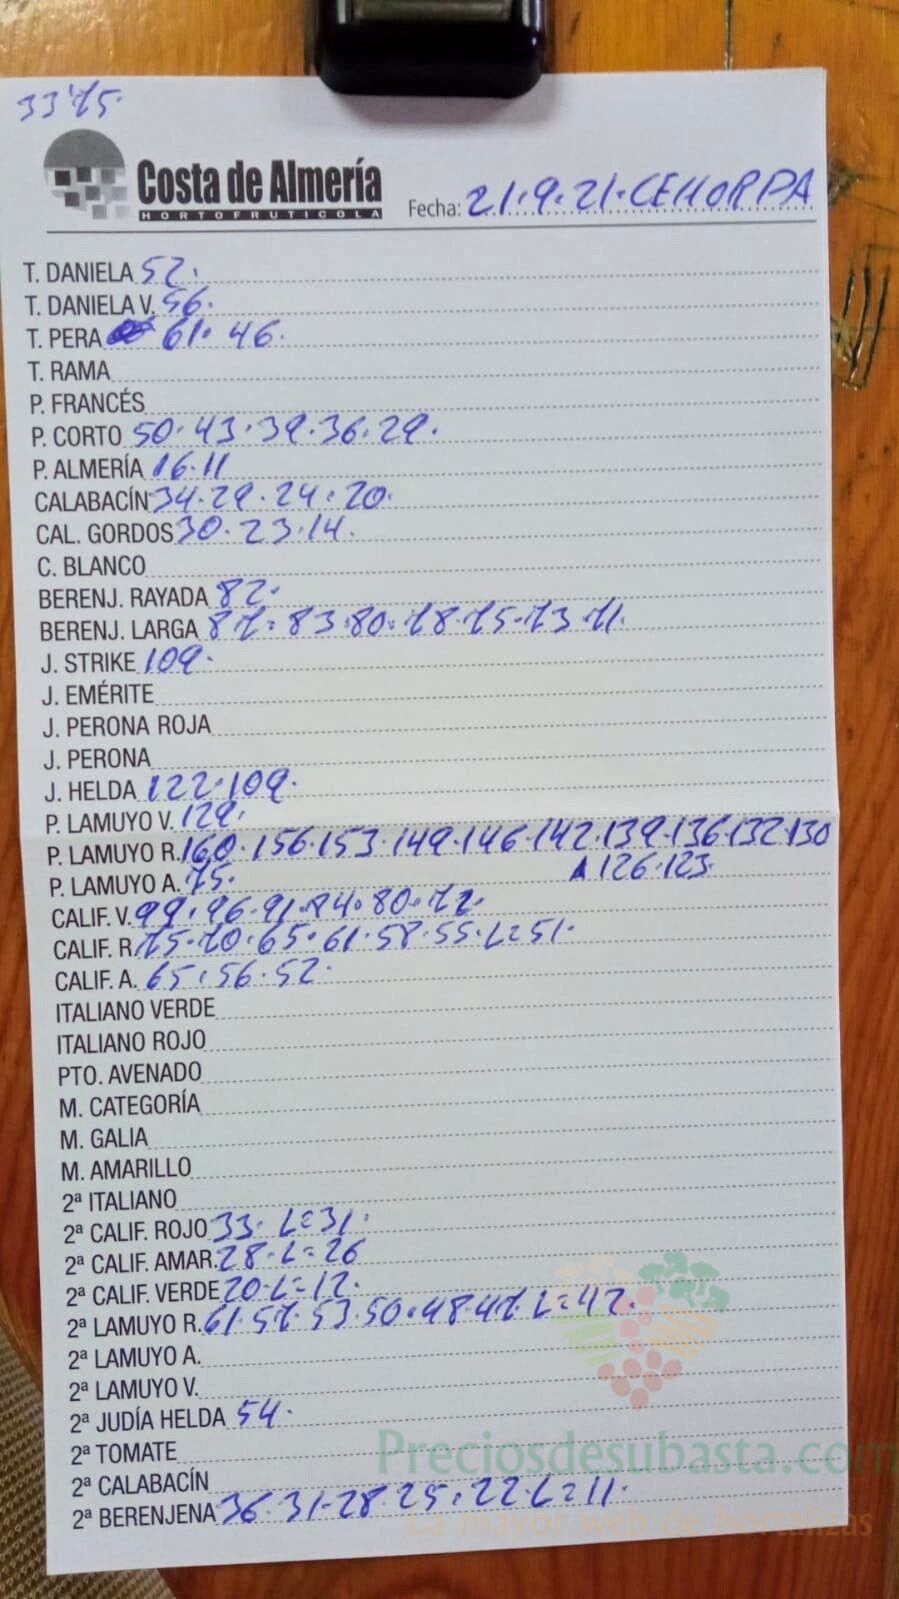 33'75.
Costa de Almería
HORTOFRUTICOLA
Fecha: 21.9.21.CEHORPA
T. DANIELA 52.
T. DANIELA V. 56.
T. PERA 61. 46.
T. RAMA
P. FRANCÉS
P. CORTO 50.43.39.36.29.
P. ALMERÍA 16.11
CALABACÍN 34.29.24.20.
CAL. GORDOS 30.23.14.
C. BLANCO
BERENJ. RAYADA 82.
BERENJ. LARGA 87.83.80.78.75.73.71.
J. STRIKE 109.
J. EMÉRITE
J. PERONA ROJA
J. PERONA
J. HELDA 122.109.
P. LAMUYO V. 129.
P. LAMUYO R. 160.156.153.149.146.142.139.136.132.130
126.123.
P. LAMUYO A. 75.
CALIF. V. 99.96.91.84.80.72.
CALIF. R. 75.70.65.61.58.55.L=51.
CALIF. A. 65.56.52.
ITALIANO VERDE
ITALIANO ROJO
PTO. AVENADO
M. CATEGORÍA
M. GALIA
M. AMARILLO
2ª ITALIANO
2ª CALIF. ROJO 33. L=31.
2ª CALIF. AMAR. 28.L=26
2ª CALIF. VERDE 20.L=12.
2ª LAMUYO R. 61.57.53.50.48.47.L=42.
2ª LAMUYO A.
2ª LAMUYO V.
2ª JUDÍA HELDA 54.
2ª TOMATE
Preciosdesubasta.com
2ª CALABACÍN
2ª BERENJENA 36.31.28.25.22.L=11.
La mayor web de hortalizas